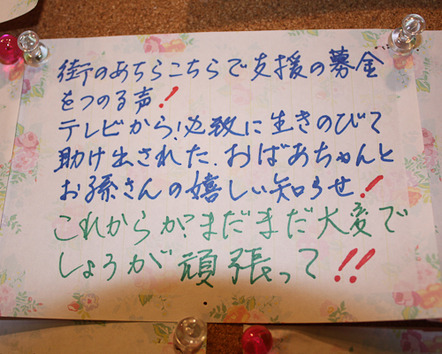 街のあちらこちらで支援の募金
をつのる声!
テレビから!必致に生きのびて
助け出された.おばあちゃんと
お孫さんの嬉しい知らせ!
これからが?まだまだ大変で
しょうが頑張って!!